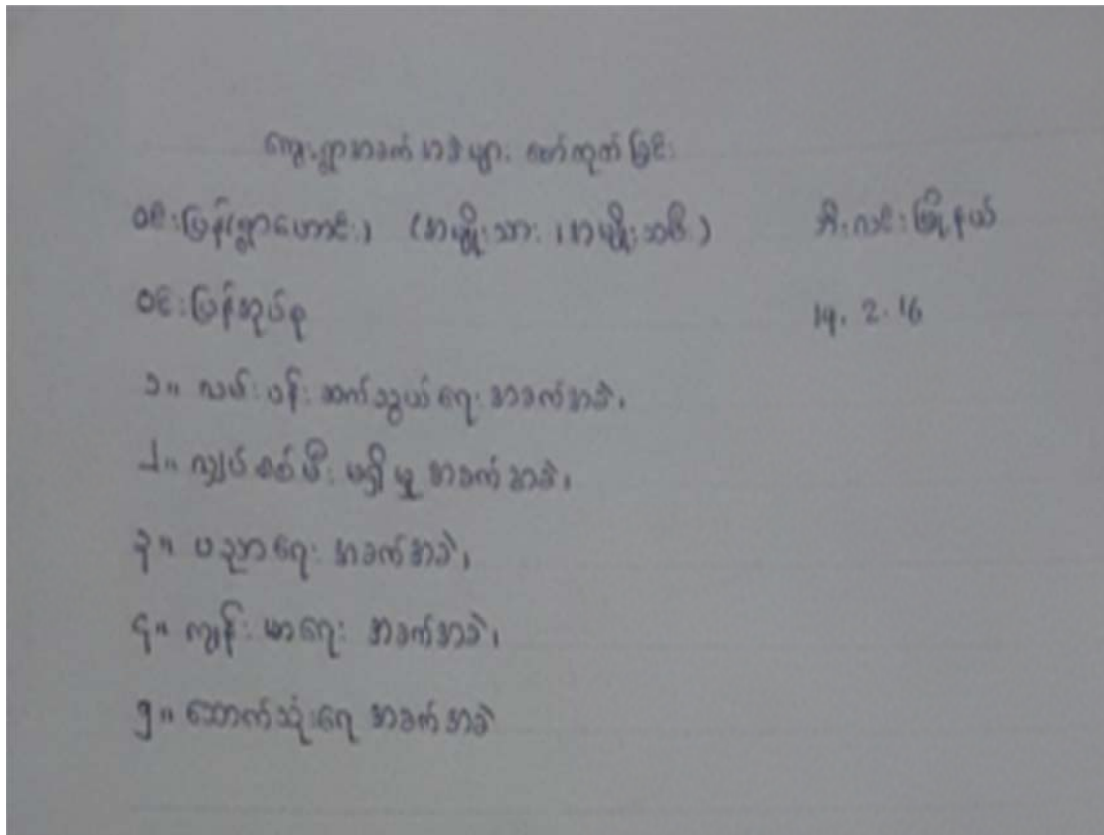 ကျေးရွာအခက်အခဲများ ဖော်ထုတ်ခြင်း
ဝင်းဖြန်(ရွာဟောင်း) (အမျိုးသား ၊ အမျိုးသမီး) ဘီးလင်းမြို့နယ်
ဝင်းဖြန်အုပ်စု 14. 2. 16
၁။ လမ်းပန်းဆက်သွယ်ရေး အခက်အခဲ၊
၂။ လျှပ်စစ်မီးမရှိမှု အခက်အခဲ၊
၃။ ပညာရေး အခက်အခဲ၊
၄။ ကျန်းမာရေး အခက်အခဲ၊
၅။ သောက်သုံးရေ အခက်အခဲ